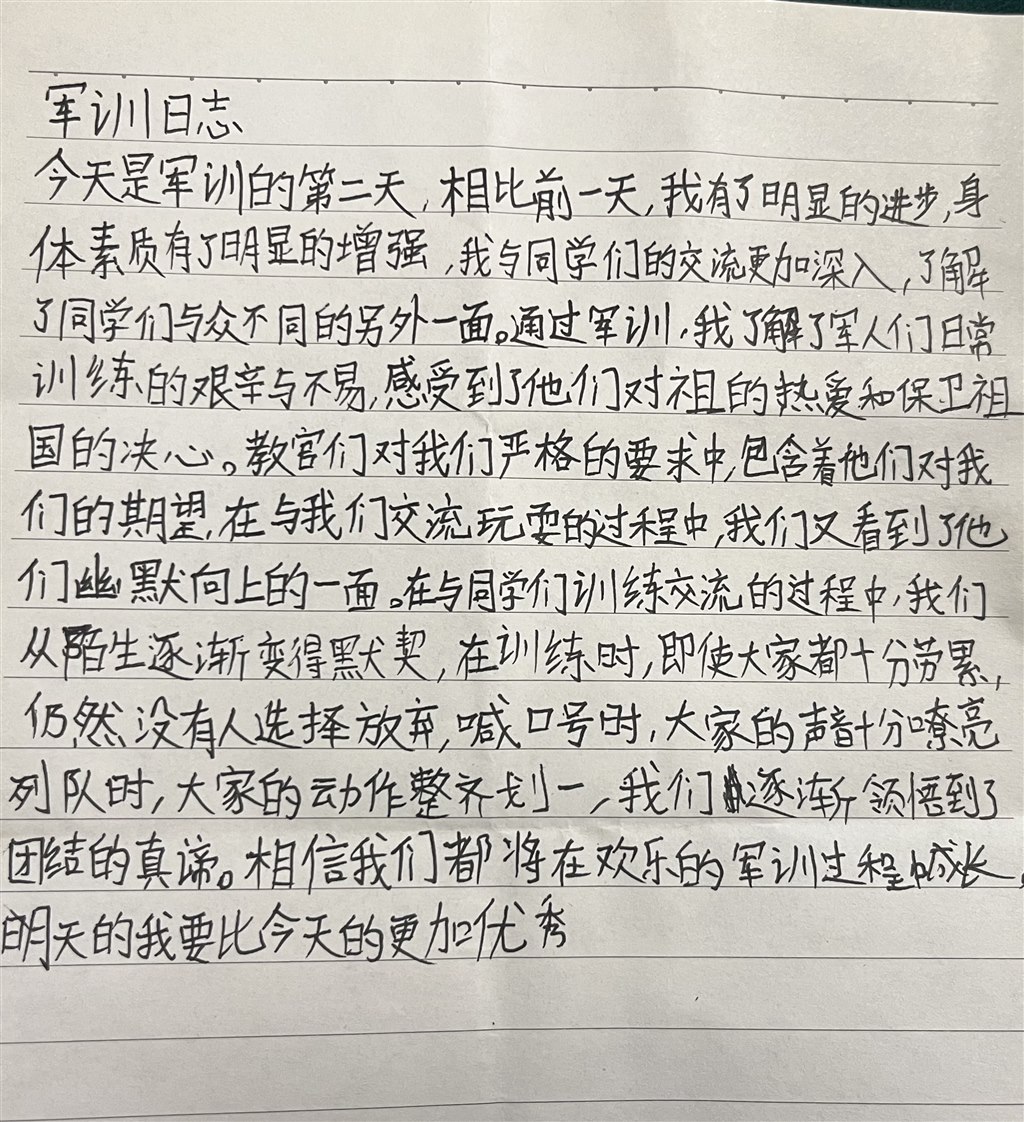 军训日志
今天是军训的第二天,相比前一天,我有了明显的进步,身
体素质有了明显的增强,我与同学们的交流更加深入,了解
了同学们与众不同的另外一面。通过军训,我了解了军人们日常
训练的艰辛与不易,感受到了他们对祖国的热爱和保卫祖
国的决心。教官们对我们严格的要求中,包含着他们对我
们的期望,在与我们交流玩耍的过程中,我们又看到了他
们幽默向上的一面。在与同学们训练交流的过程中,我们
从陌生逐渐变得默契,在训练时,即使大家都十分劳累,
仍然没有人选择放弃,喊口号时,大家的声音十分嘹亮
列队时,大家的动作整齐划一,我们逐渐领悟到了
团结的真谛。相信我们都将在欢乐的军训过程中成长。
明天的我要比今天的更加优秀